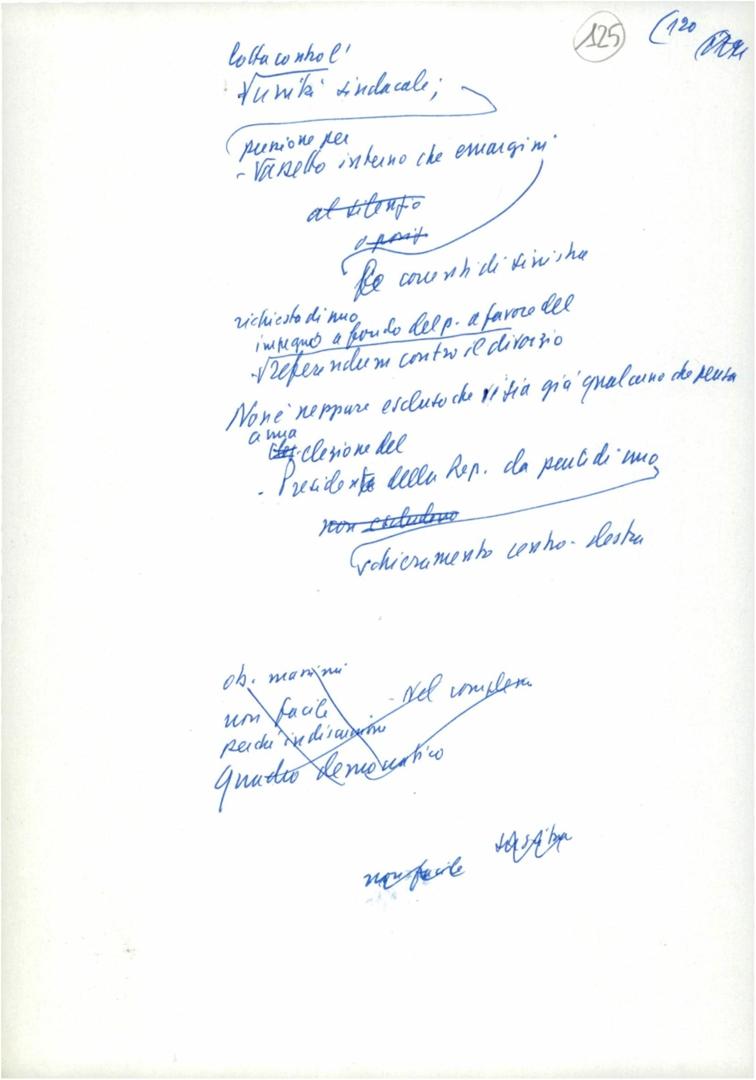 125
(120
lotta contro l'
unità sindacale;
pressione per
- assetto interno che emargini
al silenzio
o posiz
le correnti di sinistra
richiesta di uno
impegno a fondo del p. a favore del
- referendum contro il divorzio
Non è neppure escluso che vi sia già qualcuno che pensa
a una
elezione del
- Presidente della Rep. da parte di uno
non escludono
schieramento centro-destra
ob. massimi
- Nel complesso
non facile
perché in discussione
quadro democratico
non facile